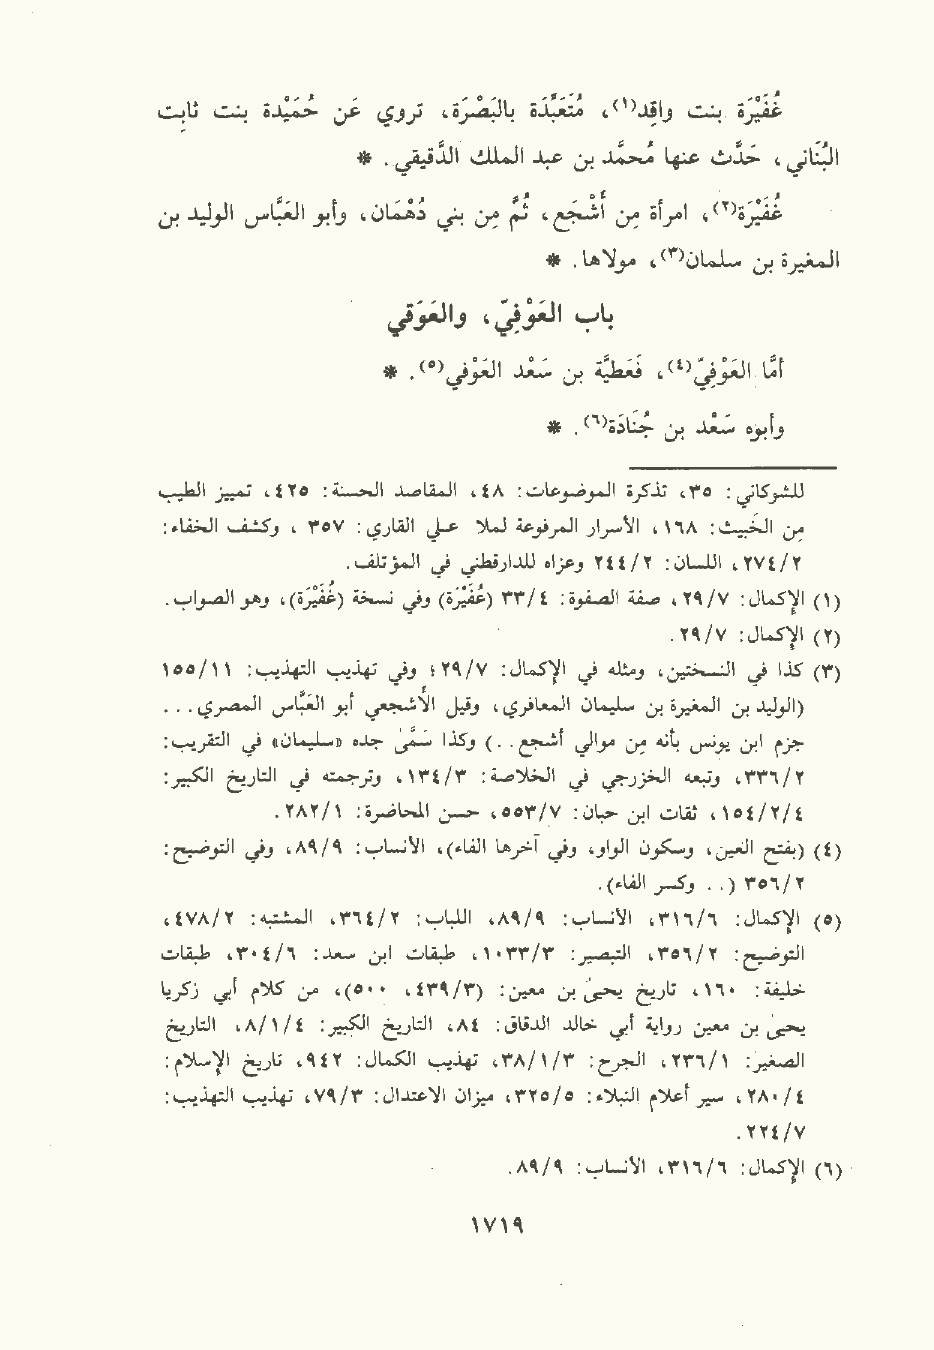 غُفَيْرَة بنت واقِد(١)، مُتَعَبِّدَة بالبَصْرَة، تروي عَن حُمَيْدة بنت ثابِت
البُنَاني، حَدَّث عنها مُحمَّد بن عبد الملك الدَّقيقي. *
غُفَيْرَة(٢)، امرأة مِن أَشْجَع، ثُمَّ مِن بني دُهْمَان، وأبو العَبَّاس الوليد بن
المغيرة بن سلمان(٣)، مولاها. *
باب العَوْفِيّ، والعَوَقي
أمَّا العَوْفِيّ(٤)، فَعَطيَّة بن سَعْد العَوْفي(٥). *
وأبوه سَعْد بن جُنَادَة(٦). *
للشوكاني: ٣٥، تذكرة الموضوعات: ٤٨، المقاصد الحسنة: ٤٢٥، تمييز الطيب
مِن الخَبيث: ١٦٨، الأسرار المرفوعة لملا علي القاري: ٣٥٧، وكشف الخفاء:
٢/٢٧٤، اللسان: ٢/٢٤٤ وعزاه للدارقطني في المؤتلف.
(١) الإكمال: ٧/٢٩، صفة الصفوة: ٤/٣٣ (غُفَيْرَة) وفي نسخة (غُفَيْرَة)، وهو الصواب.
(٢) الإكمال: ٧/٢٩.
(٣) كذا في النسختين، ومثله في الإكمال: ٧/٢٩؛ وفي تهذيب التهذيب: ١١/١٥٥
(الوليد بن المغيرة بن سليمان المعافري، وقيل الأشجعي أبو العَبَّاس المصري...
جزم ابن يونس بأنه من موالي أشجع..) وكذا سَمَّىٰ جده «سليمان» في التقريب:
٢/٣٣٦، وتبعه الخزرجي في الخلاصة: ٣/١٣٤، وترجمته في التاريخ الكبير:
٤/٢/١٥٤، ثقات ابن حبان: ٧/٥٥٣، حسن المحاضرة: ١/٢٨٢.
(٤) (بفتح العين، وسكون الواو، وفي آخرها الفاء)، الأنساب: ٩/٨٩، وفي التوضيح:
٢/٣٥٦ (.. وكسر الفاء).
(٥) الإكمال: ٦/٣١٦، الأنساب: ٩/٨٩، اللباب: ٢/٣٦٤، المشتبه: ٢/٤٧٨،
التوضيح: ٢/٣٥٦، التبصير: ٣/١٠٣٣، طبقات ابن سعد: ٦/٣٠٤، طبقات
خليفة: ١٦٠، تاريخ يحيىٰ بن معين: (٣/٤٣٩، ٥٠٠)، من كلام أبي زكريا
يحيىٰ بن معين رواية أبي خالد الدقاق: ٨٤، التاريخ الكبير: ٤/١/٨، التاريخ
الصغير: ١/٢٣٦، الجرح: ٣/١/٣٨، تهذيب الكمال: ٩٤٢، تاريخ الإسلام:
٤/٢٨٠، سير أعلام النبلاء: ٥/٣٢٥، ميزان الاعتدال: ٣/٧٩، تهذيب التهذيب:
٧/٢٢٤.
(٦) الإكمال: ٦/٣١٦، الأنساب: ٩/٨٩.
١٧١٩